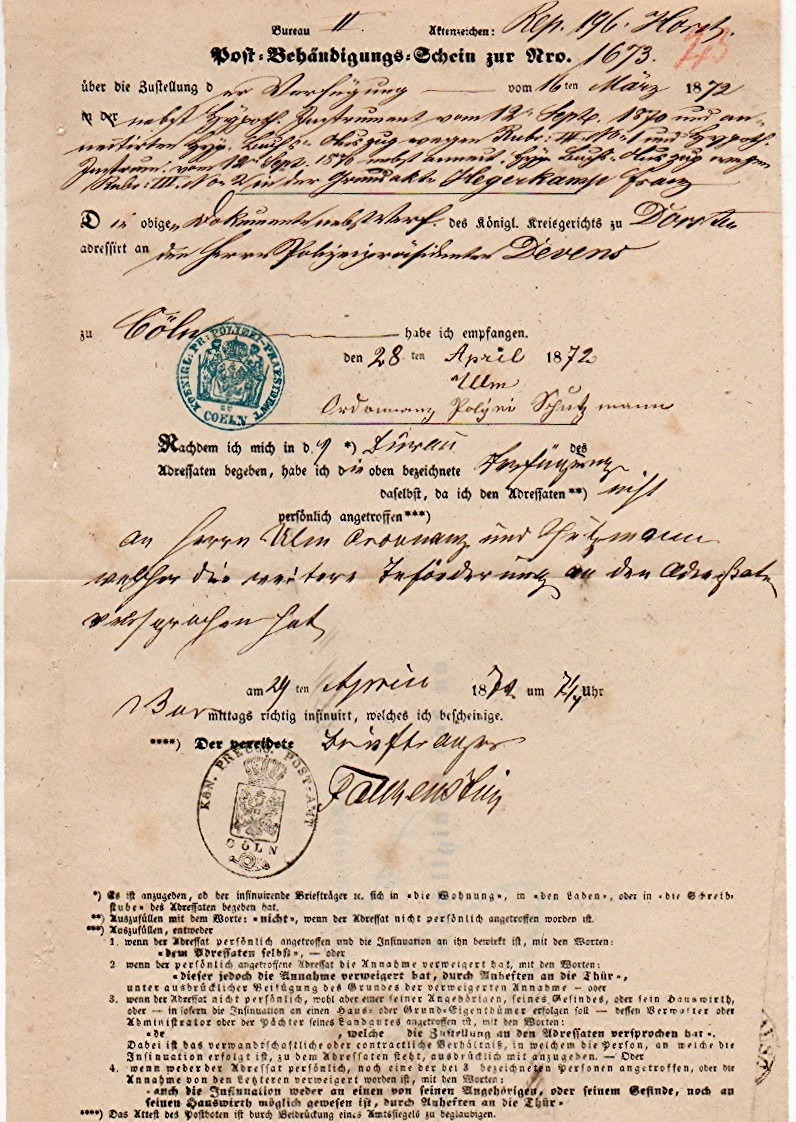 Bureau II. Aktenzeichen: Rep. 196. Horst.
Post-Behändigungs-Schein zur Nro. 1673.
über die Zustellung der Verfügung vom 16ten März 1872
in der nebst Hypoth. Instrument vom 12 Sept. 1870 und an-
nectirten Hyp. Buchs-Auszug wegen Rubr. III. No. 1 und Hypoth.
Instrum. vom 12 Sept. 1870 nebst annect. Hyp. Buchs-Auszug wegen
Rubr. III. No 2 in der Grundakte Hegerkamp Franz
Die obigen Dokumente nebst Verf. des Königl. Kreisgerichts zu Dorsten
adressirt an den Herrn Polizeipräsidenten Devens
zu Cöln habe ich empfangen.
den 28 ten April 1872
Ulm
Ordonnanz Polizei Schutzmann
KOENIGL: PR: POLIZEI-PRAESIDENT
ZU
COELN
Nachdem ich mich in d. *) Bureau des
Adressaten begeben, habe ich die oben bezeichnete Verfügung
daselbst, da ich den Adressaten**) nicht
persönlich angetroffen***)
an Herrn Ulm Ordonnanz und Schutzmann
welcher die weitere Beförderung an den Adressaten
versprochen hat
am 29 ten April 1872 um 7 1/4 Uhr
Vormittags richtig insinuirt, welches ich bescheinige.
****) Der vereidete Briefträger
Falkenstein
KÖN. PREUSS. POST-AMT
CÖLN
*) Es ist anzugeben, ob der insinuirende Briefträger ꝛc. sich in »die Wohnung«, in »den Laden«, oder in »die Schreib-
stube« des Adressaten begeben hat.
**) Auszufüllen mit dem Worte: »nicht«, wenn der Adressat nicht persönlich angetroffen worden ist.
***) Auszufüllen, entweder
1. wenn der Adressat persönlich angetroffen und die Insinuation an ihn bewirkt ist, mit den Worten:
»dem Adressaten selbst«, — oder
2 wenn der persönlich angetroffene Adressat die Annahme verweigert hat, mit den Worten:
»dieser jedoch die Annahme verweigert hat, durch Anheften an die Thür«,
unter ausdrücklicher Beifügung des Grundes der verweigerten Annahme — oder
3. wenn der Adressat nicht persönlich, wohl aber einer seiner Angehörigen, seines Gesindes, oder sein Hauswirth,
oder — in sofern die Insinuation an einen Haus- oder Grund-Eigenthümer erfolgen soll — dessen Verwalter oder
Administrator oder der Pächter seines Landgutes angetroffen ist, mit den Worten:
»de , welche die Zustellung an den Adressaten versprochen hat«.
Dabei ist das verwandschaftliche oder contractliche Verhältniß, in welchem die Person, an welche die
Insinuation erfolgt ist, zu dem Adressaten steht, ausdrücklich mit anzugeben. — Oder
4. wenn weder der Adressat persönlich, noch eine der bei 3 bezeichneten Personen angetroffen, oder die
Annahme von den Letzteren verweigert worden ist, mit den Worten:
»auch die Insinuation weder an einen von seinen Angehörigen, oder seinem Gesinde, noch an
seinen Hauswirth möglich gewesen ist, durch Anheften an die Thür«
****) Das Attest des Postboten ist durch Beidrückung eines Amtssiegels zu beglaubigen.